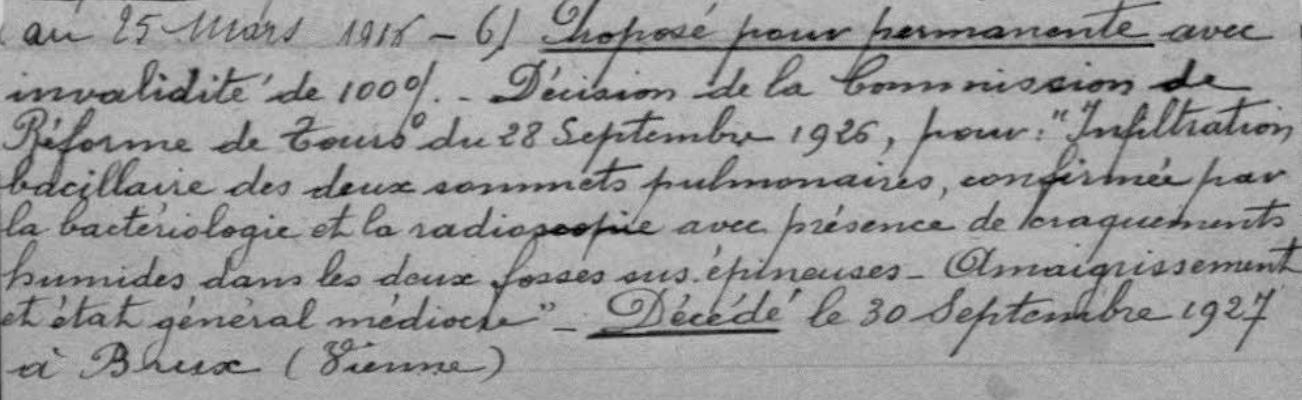 au 25 Mars 1916 - 6) Proposé pour permanente avec
invalidité de 100%. - Décision de la Commission de
Réforme de Tours du 28 Septembre 1926, pour : "Infiltration
bacillaire des deux sommets pulmonaires, confirmée par
la bactériologie et la radioscopie avec présence de craquements
humides dans les deux fosses sus-épineuses - Amaigrissement
et état général médiocre" - Décédé le 30 Septembre 1927
à Brux (Vienne)